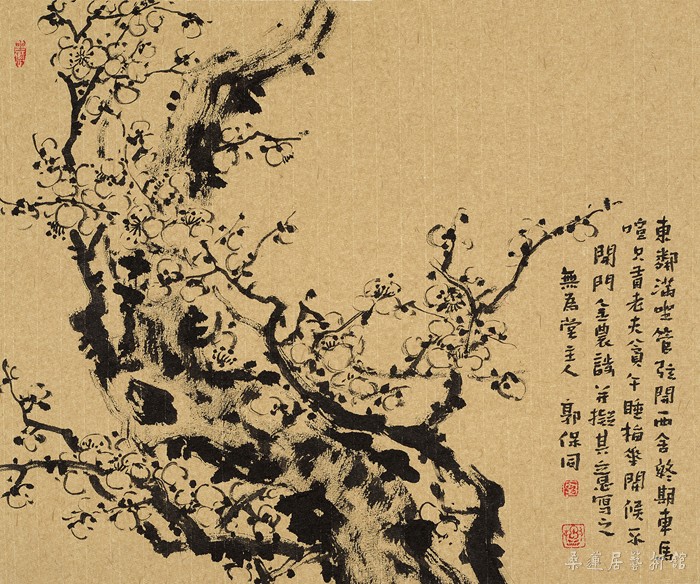 東鄰滿坐管弦鬧西舍終期車馬
喧只有老夫貪午睡梅華開候不
開門金農詩并擬其意寫之
無為堂主人 郭保同
桑蓮居藝術館